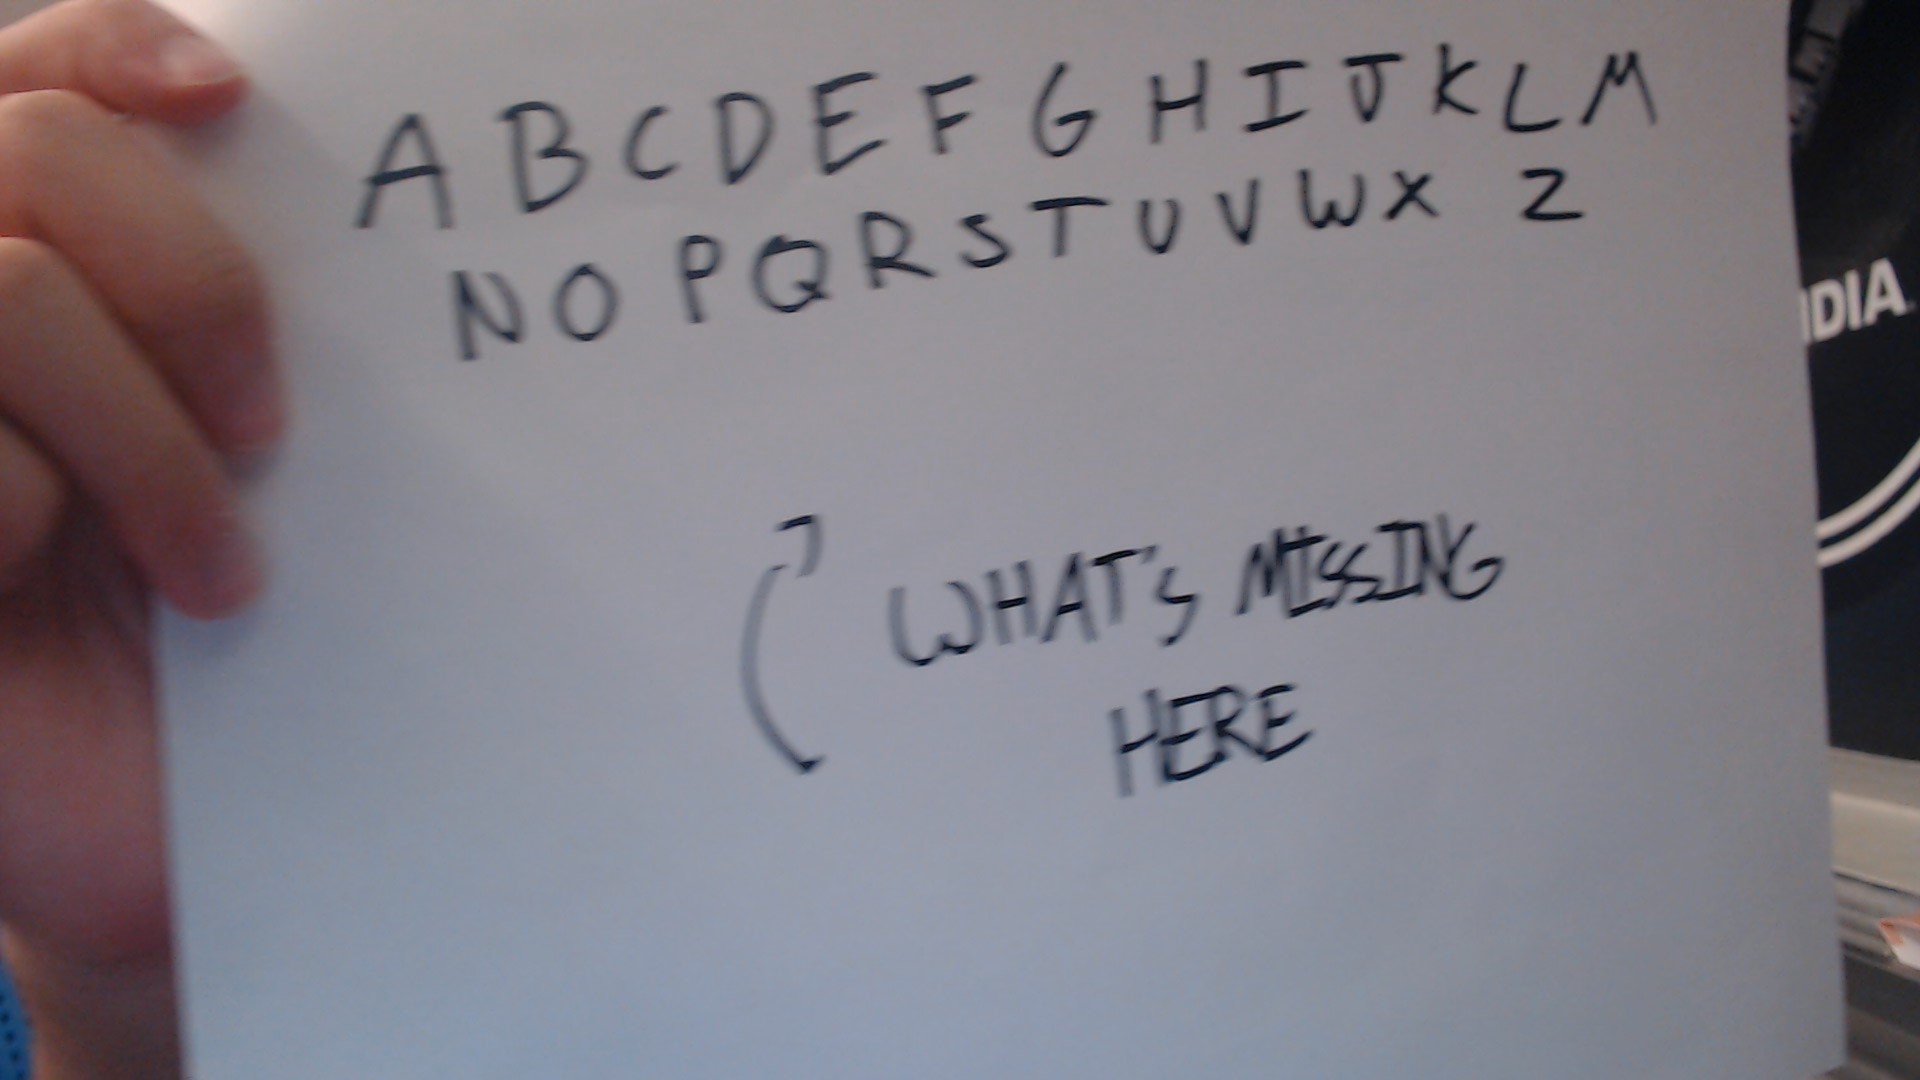 A B C D E F G H I J K L M
N O P Q R S T U V W X Z
WHAT'S MISSING
HERE
IDIA